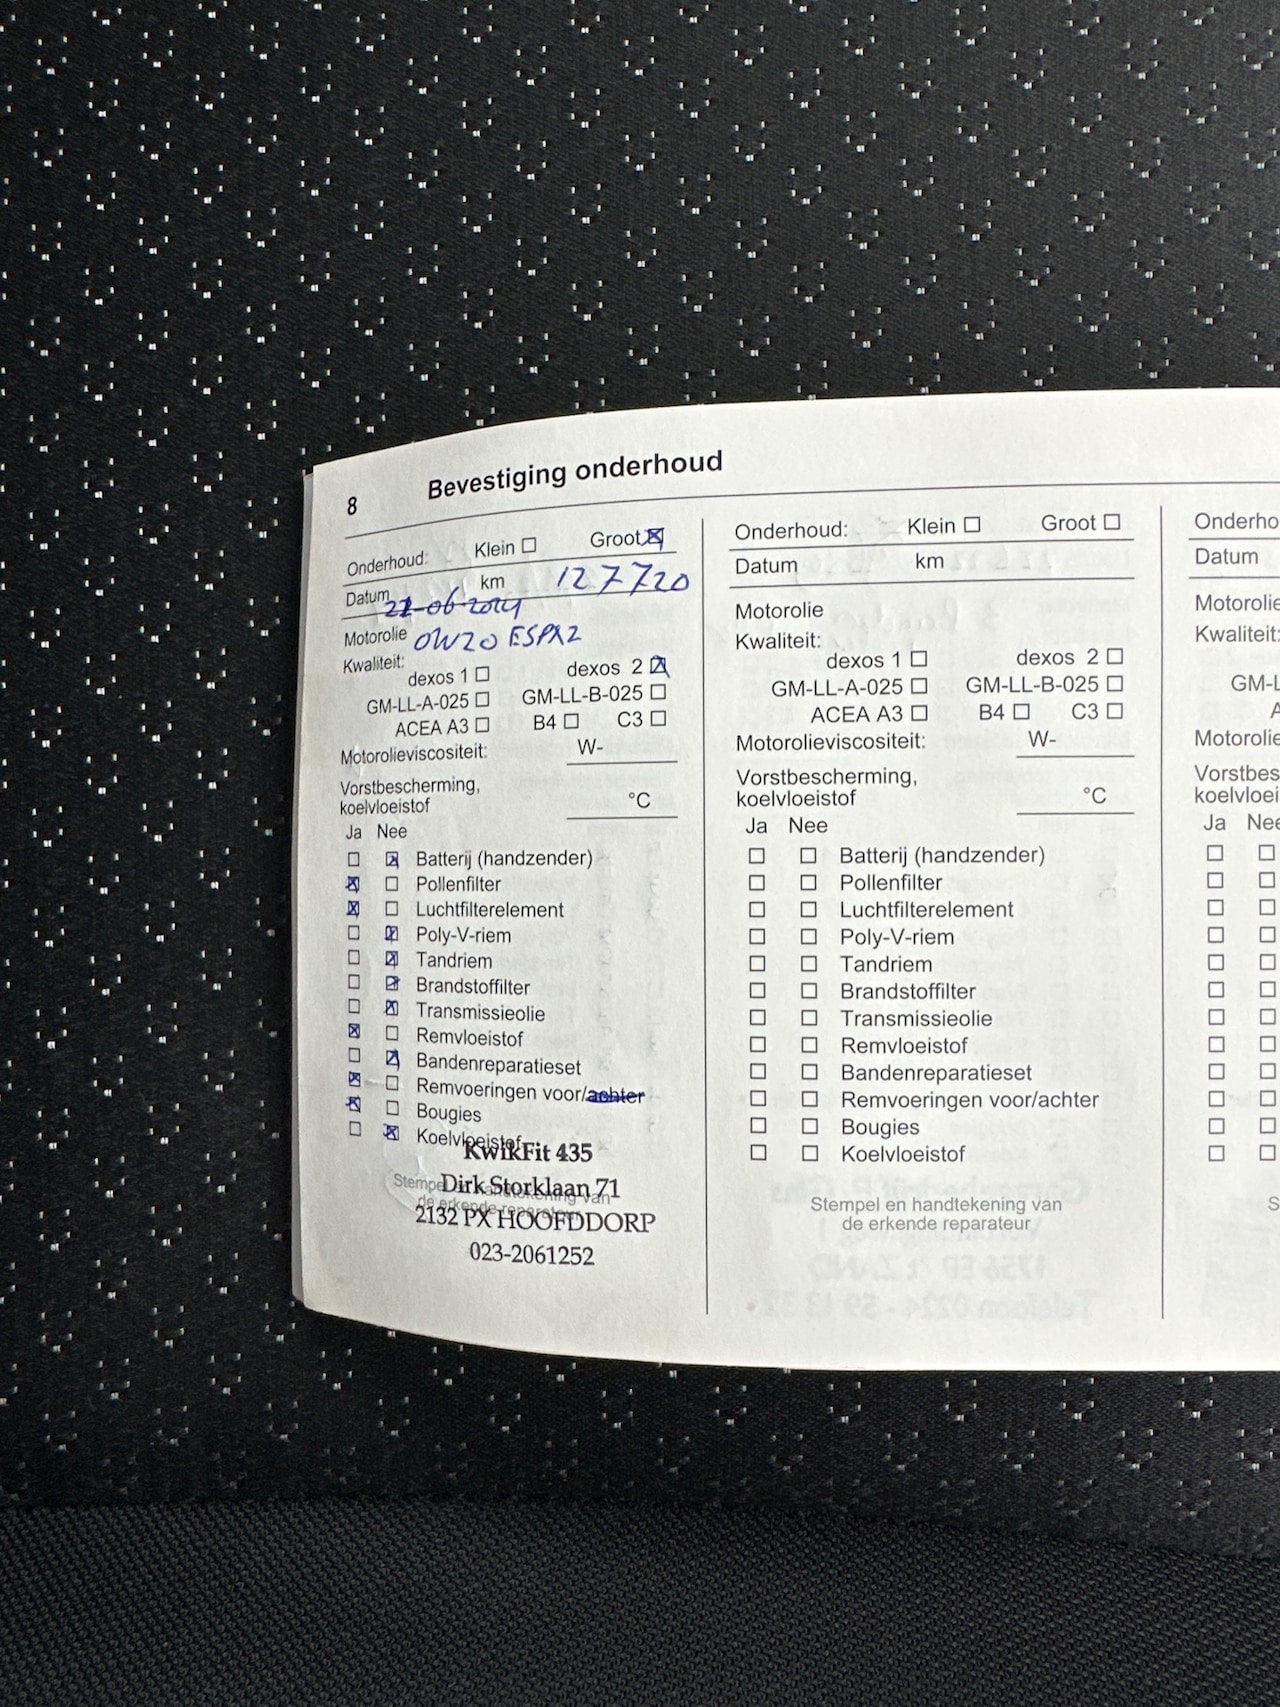 8 Bevestiging onderhoud
Onderhoud: Klein ☐ Groot ☒
Datum 21-06-2024 km 127720
Motorolie 0W20 ESPX2
Kwaliteit:
dexos 1 ☐ dexos 2 ☒
GM-LL-A-025 ☐ GM-LL-B-025 ☐
ACEA A3 ☐ B4 ☐ C3 ☐
Motorolieviscositeit: W-
Vorstbescherming,
koelvloeistof °C
Ja Nee
☐ ☒ Batterij (handzender)
☒ ☐ Pollenfilter
☒ ☐ Luchtfilterelement
☐ ☒ Poly-V-riem
☐ ☒ Tandriem
☐ ☒ Brandstoffilter
☐ ☒ Transmissieolie
☒ ☐ Remvloeistof
☐ ☒ Bandenreparatieset
☒ ☐ Remvoeringen voor/achter
☒ ☐ Bougies
☐ ☒ Koelvloeistof
Stempel en handtekening van
de erkende reparateur
KwikFit 435
Dirk Storklaan 71
2132 PX HOOFDDORP
023-2061252
Onderhoud: Klein ☐ Groot ☐
Datum km
Motorolie
Kwaliteit:
dexos 1 ☐ dexos 2 ☐
GM-LL-A-025 ☐ GM-LL-B-025 ☐
ACEA A3 ☐ B4 ☐ C3 ☐
Motorolieviscositeit: W-
Vorstbescherming,
koelvloeistof °C
Ja Nee
☐ ☐ Batterij (handzender)
☐ ☐ Pollenfilter
☐ ☐ Luchtfilterelement
☐ ☐ Poly-V-riem
☐ ☐ Tandriem
☐ ☐ Brandstoffilter
☐ ☐ Transmissieolie
☐ ☐ Remvloeistof
☐ ☐ Bandenreparatieset
☐ ☐ Remvoeringen voor/achter
☐ ☐ Bougies
☐ ☐ Koelvloeistof
Stempel en handtekening van
de erkende reparateur
Onderho
Datum
Motorolie
Kwaliteit:
GM-L
A
Motorolie
Vorstbes
koelvloei
Ja Nee
☐ ☐
☐ ☐
☐ ☐
☐ ☐
☐ ☐
☐ ☐
☐ ☐
☐ ☐
☐ ☐
☐ ☐
☐ ☐
☐ ☐
S